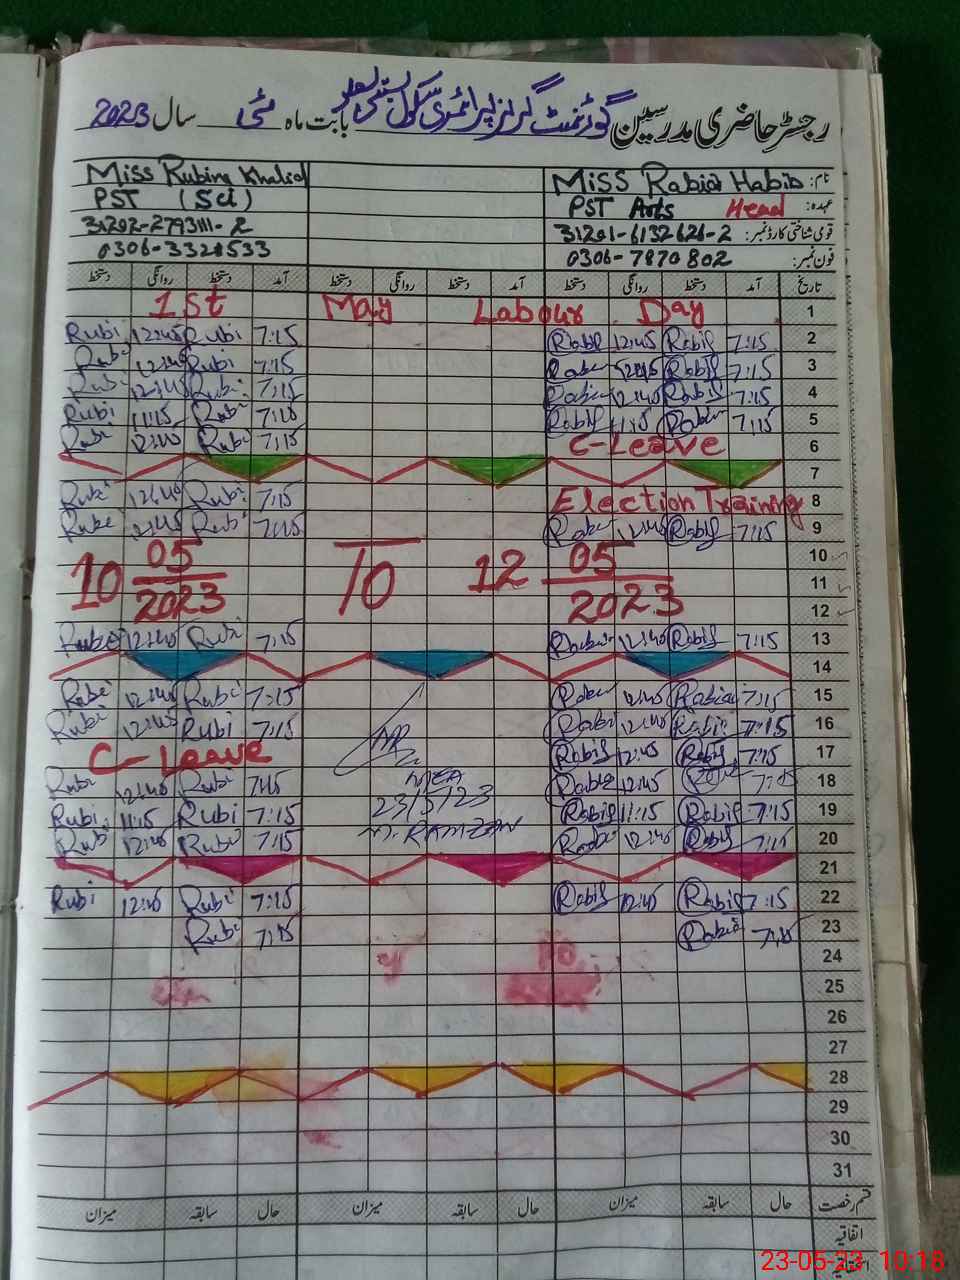 رجسٹر حاضری مدرسین گورنمنٹ گرلز پرائمری سکول بستی بابت ماہ مئی سال 2023
نام: Miss Rabia Habib Miss Rubina Khalid
عہدہ: PST Arts Head PST (Sci)
قومی شناختی کارڈ نمبر: 31201-6132626-2 31202-2793111-2
فون نمبر: 0306-7870802 0306-3328533
تاریخ آمد دستخط روانگی دستخط آمد دستخط روانگی دستخط آمد دستخط روانگی دستخط
1st May Labour Day 1
Rubi 12:45 Rubi 7:15 Rabif 12:45 Rabif 7:15 2
Rubi 12:45 Rubi 7:15 12:45 Rabif 7:15 3
Rubi 12:45 Rubi 7:15 12:45 Rabif 7:15 4
Rubi 11:15 Rubi 7:15 Rabif 11:15 7:15 5
Rubi 12:45 Rubi 7:15 C-Leave 6
7
Rubi 12:45 Rubi 7:15 Election Training 8
Rubi 12:45 Rubi 7:15 12:45 Rabif 7:15 9
10 05 2023 10 12 05 2023
10
11
12
Rubi 12:45 Rubi 7:15 12:45 Rabif 7:15 13
14
Rubi 12:45 Rubi 7:15 12:45 Rabia 7:15 15
Rubi 12:45 Rubi 7:15 Rabi 12:45 Rabi 7:15 16
C-Leave Rabif 12:45 Rabif 7:15 17
Rubi 12:45 Rubi 7:15 Rabia 12:45 7:15 18
Rubi 11:15 Rubi 7:15 Rabif 11:15 Rabif 7:15 19
Rubi 12:45 Rubi 7:15 12:45 Rabif 7:15 20
MEA
23/5/23
M. RAMZAN
21
Rubi 12:45 Rubi 7:15 Rabif 12:45 Rabif 7:15 22
Rubi 7:15 Rabia 7:15 23
24
25
26
27
28
29
30
31
قسم رخصت حال سابقہ میزان حال سابقہ میزان حال سابقہ میزان
اتفاقیہ
23-05-23 10:18